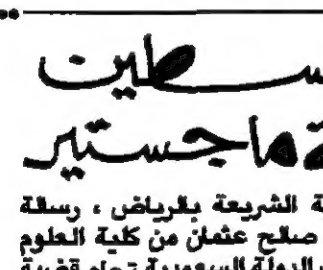 سطين
ة ماجستير
ة الشريعة بالرياض ، رسالة
صالح عثمان من كلية العلوم
الدولة السعودية تجاه قضية